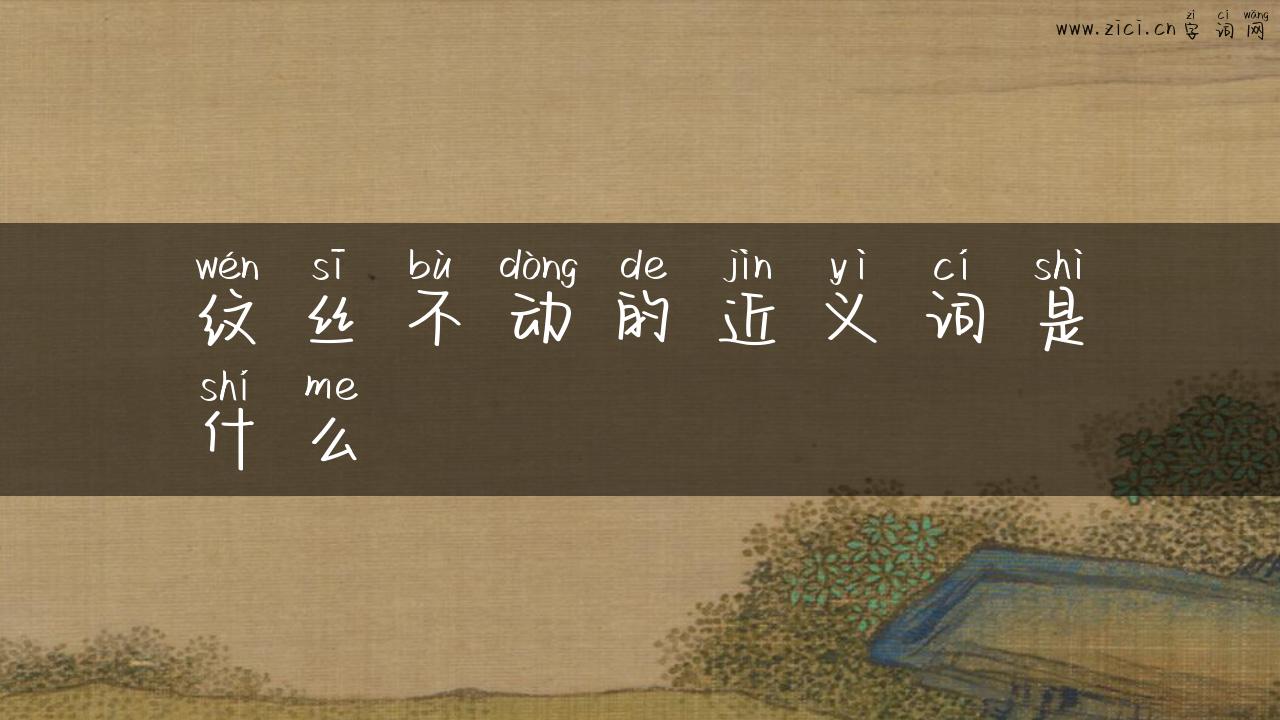 zì cí wǎng
www.zici.cn字词网
wén sī bù dòng de jìn yì cí shì
纹丝不动的近义词是
shí me
什么